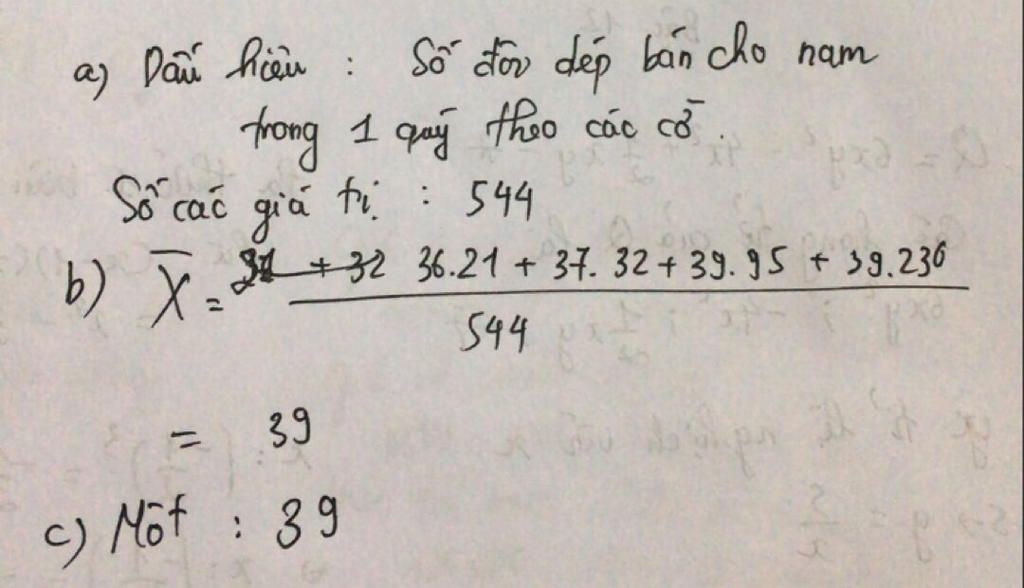 a) Dấu hiệu : Số đôi dép bán cho nam
trong 1 quý theo các cỡ.
Số các giá trị : 544
b) X̄ = 36.21 + 37.32 + 39.95 + 39.236
544
= 39
c) Mốt : 39